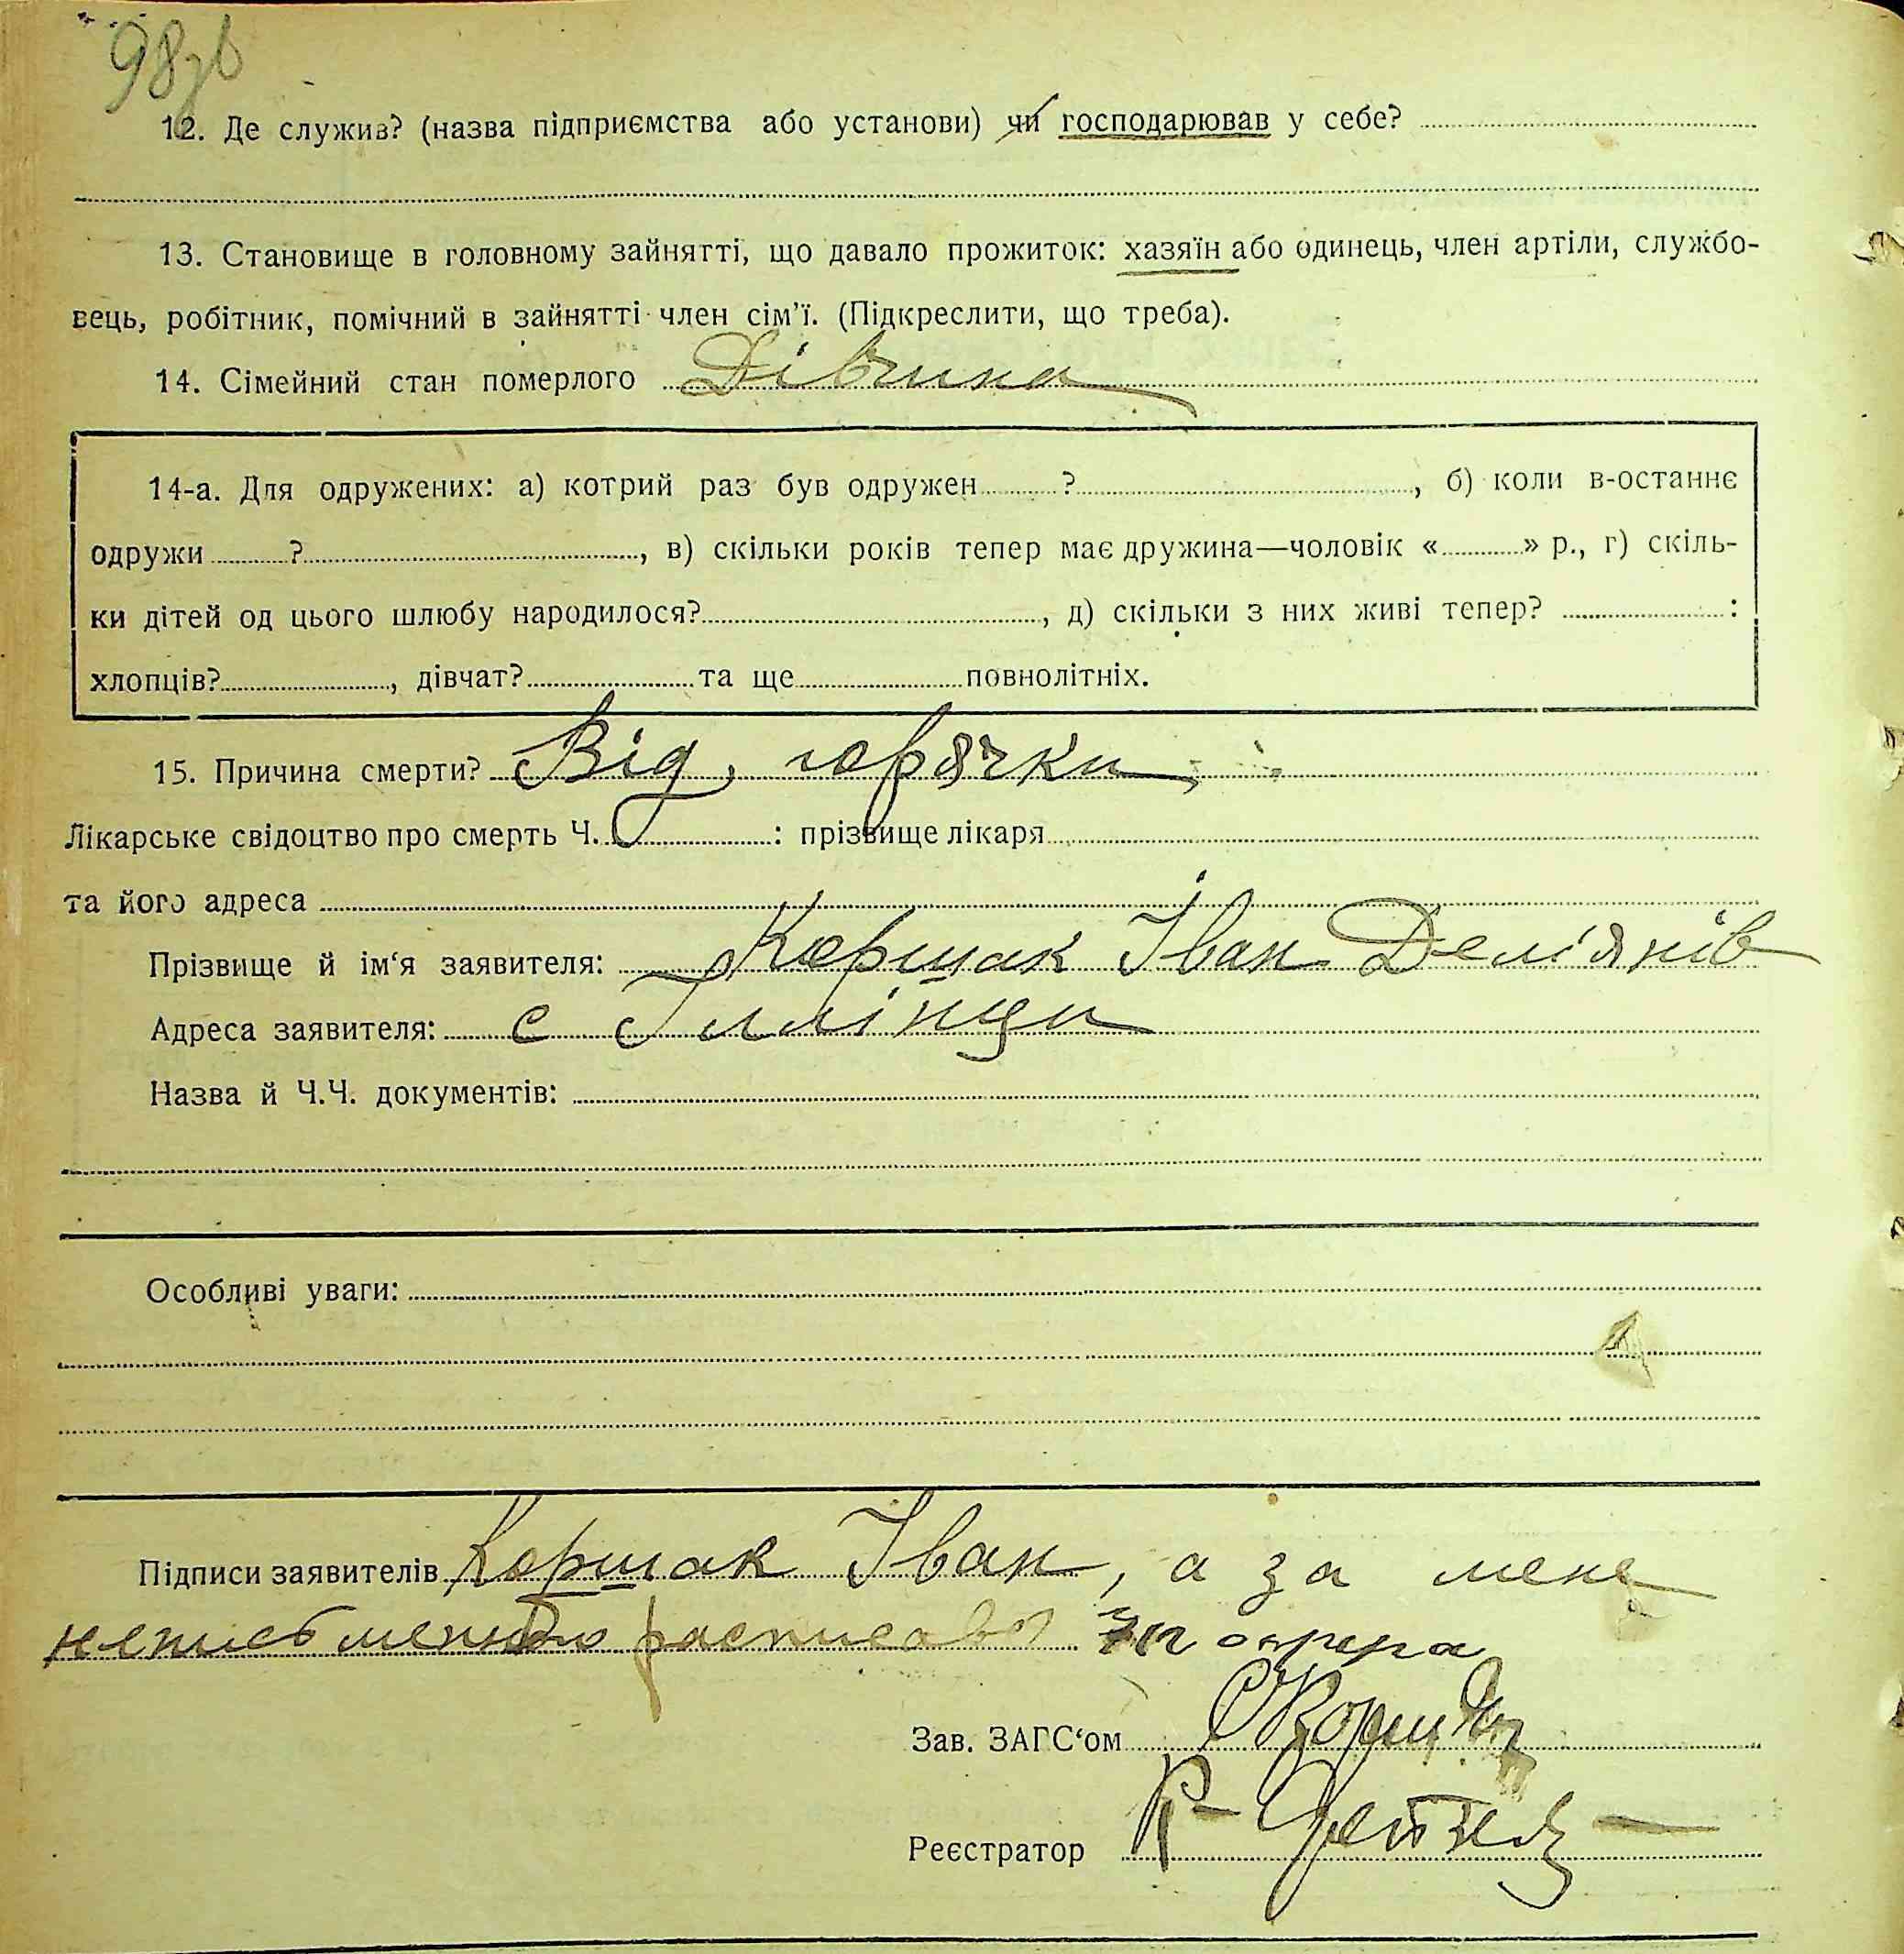 98зв
12. Де служив? (назва підприємства або установи) чи господарював у себе?
13. Становище в головному зайнятті, що давало прожиток: хазяїн або одинець, член артіли, службо-
вець, робітник, помічний в зайнятті член сім'ї. (Підкреслити, що треба).
14. Сімейний стан померлого Дівчина
14-а. Для одружених: а) котрий раз був одружен ? , б) коли в-останнє
одружи ? , в) скільки років тепер має дружина—чоловік « » р., г) скіль-
ки дітей од цього шлюбу народилося? , д) скільки з них живі тепер? :
хлопців? , дівчат? та ще повнолітніх.
15. Причина смерти? Від горячки
Лікарське свідоцтво про смерть Ч. : прізвище лікаря
та його адреса
Прізвище й ім'я заявителя: Коршак Іван Делі'янів
Адреса заявителя: с Іллінци
Назва й Ч.Ч. документів:
Особливі уваги:
Підписи заявителів Коршак Іван, а за мене
Зав. ЗАГС'ом
Реєстратор